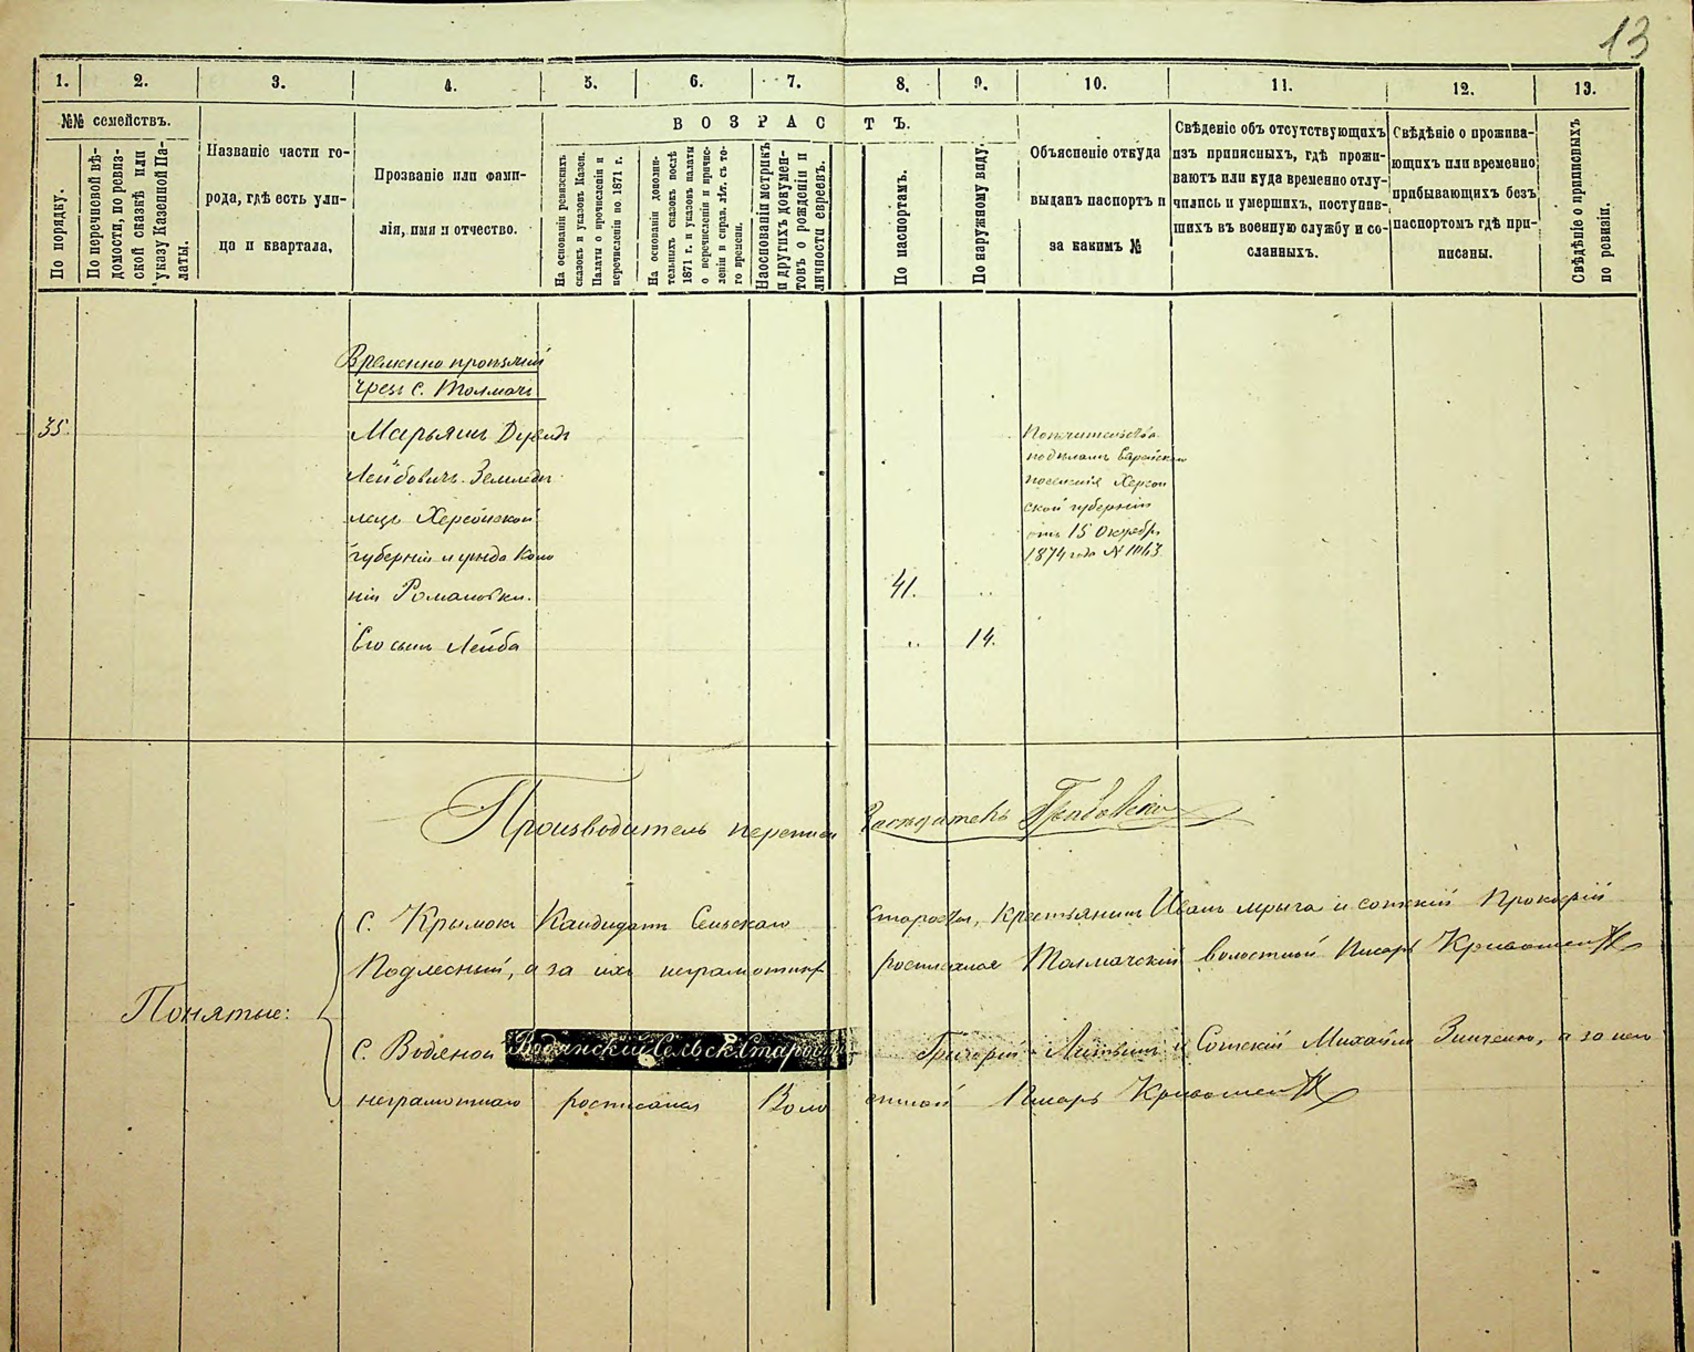 13
1. 2. 3. 4. 5. 6. 7. 8. 9. 10. 11. 12. 13.
№№ семействъ.
По порядку.
По перечневой вѣ-
домости, по ревиз-
ской сказкѣ или
указу Казенной Па-
латы.
Названіе части го-
рода, гдѣ есть ули-
ца и квартала,
Прозваніе или фами-
лія, имя и отчество.
ВОЗРАСТЪ.
На основаніи ревизскихъ
сказокъ и указовъ Казен.
Палаты о причисленіи и
перечисленіи по 1871 г.
На основаніи дополни-
тельныхъ сказокъ послѣ
1871 г. и указовъ палаты
о перечисленіи и причис-
леніи и справ. лѣт. съ то-
го времени.
На основаніи метрикъ
и другихъ докумен-
товъ о рожденіи и
личности евреевъ.
По паспортамъ.
По наружному виду.
Объясненіе откуда
выданъ паспортъ и
за какимъ №
Свѣденіе объ отсутствующихъ
изъ приписныхъ, гдѣ прожи-
ваютъ или куда временно отлу-
чились и умершихъ, поступив-
шихъ въ военную службу и со-
сланныхъ.
Свѣдѣніе о прожива-
ющихъ или временно
прибывающихъ безъ
паспортомъ гдѣ при-
писаны.
Свѣдѣніе о приписныхъ
по ревизіи.
Временно
чрезъ с. Толмачъ
35.
Марьяшъ
Лейбовичъ Земледѣ
лецъ Херсонской
губерніи и уѣзда Коло
ніи Романовки.
41.
Его сынъ Лейба
14.
Попечительства
по дѣламъ Еврейскаго
поселенія Херсон
ской губерніи
отъ 15 Октября
1874 года №
Производитель переписи Засѣдатель
Понятые:
С. Крымока Кандидатъ Сельскаго Старосты, Крестьянинъ Иванъ Мрыга и сотскій Прокофій
Подлесный, а за ихъ неграмотныхъ росписался Толмачскій волостной Писарь
С. Водяной Водянскій Сельск. Староста Григорій Литвинъ и Сотскій Михайло Зинченко, а за него
неграмотнаго росписался Волостной Писарь